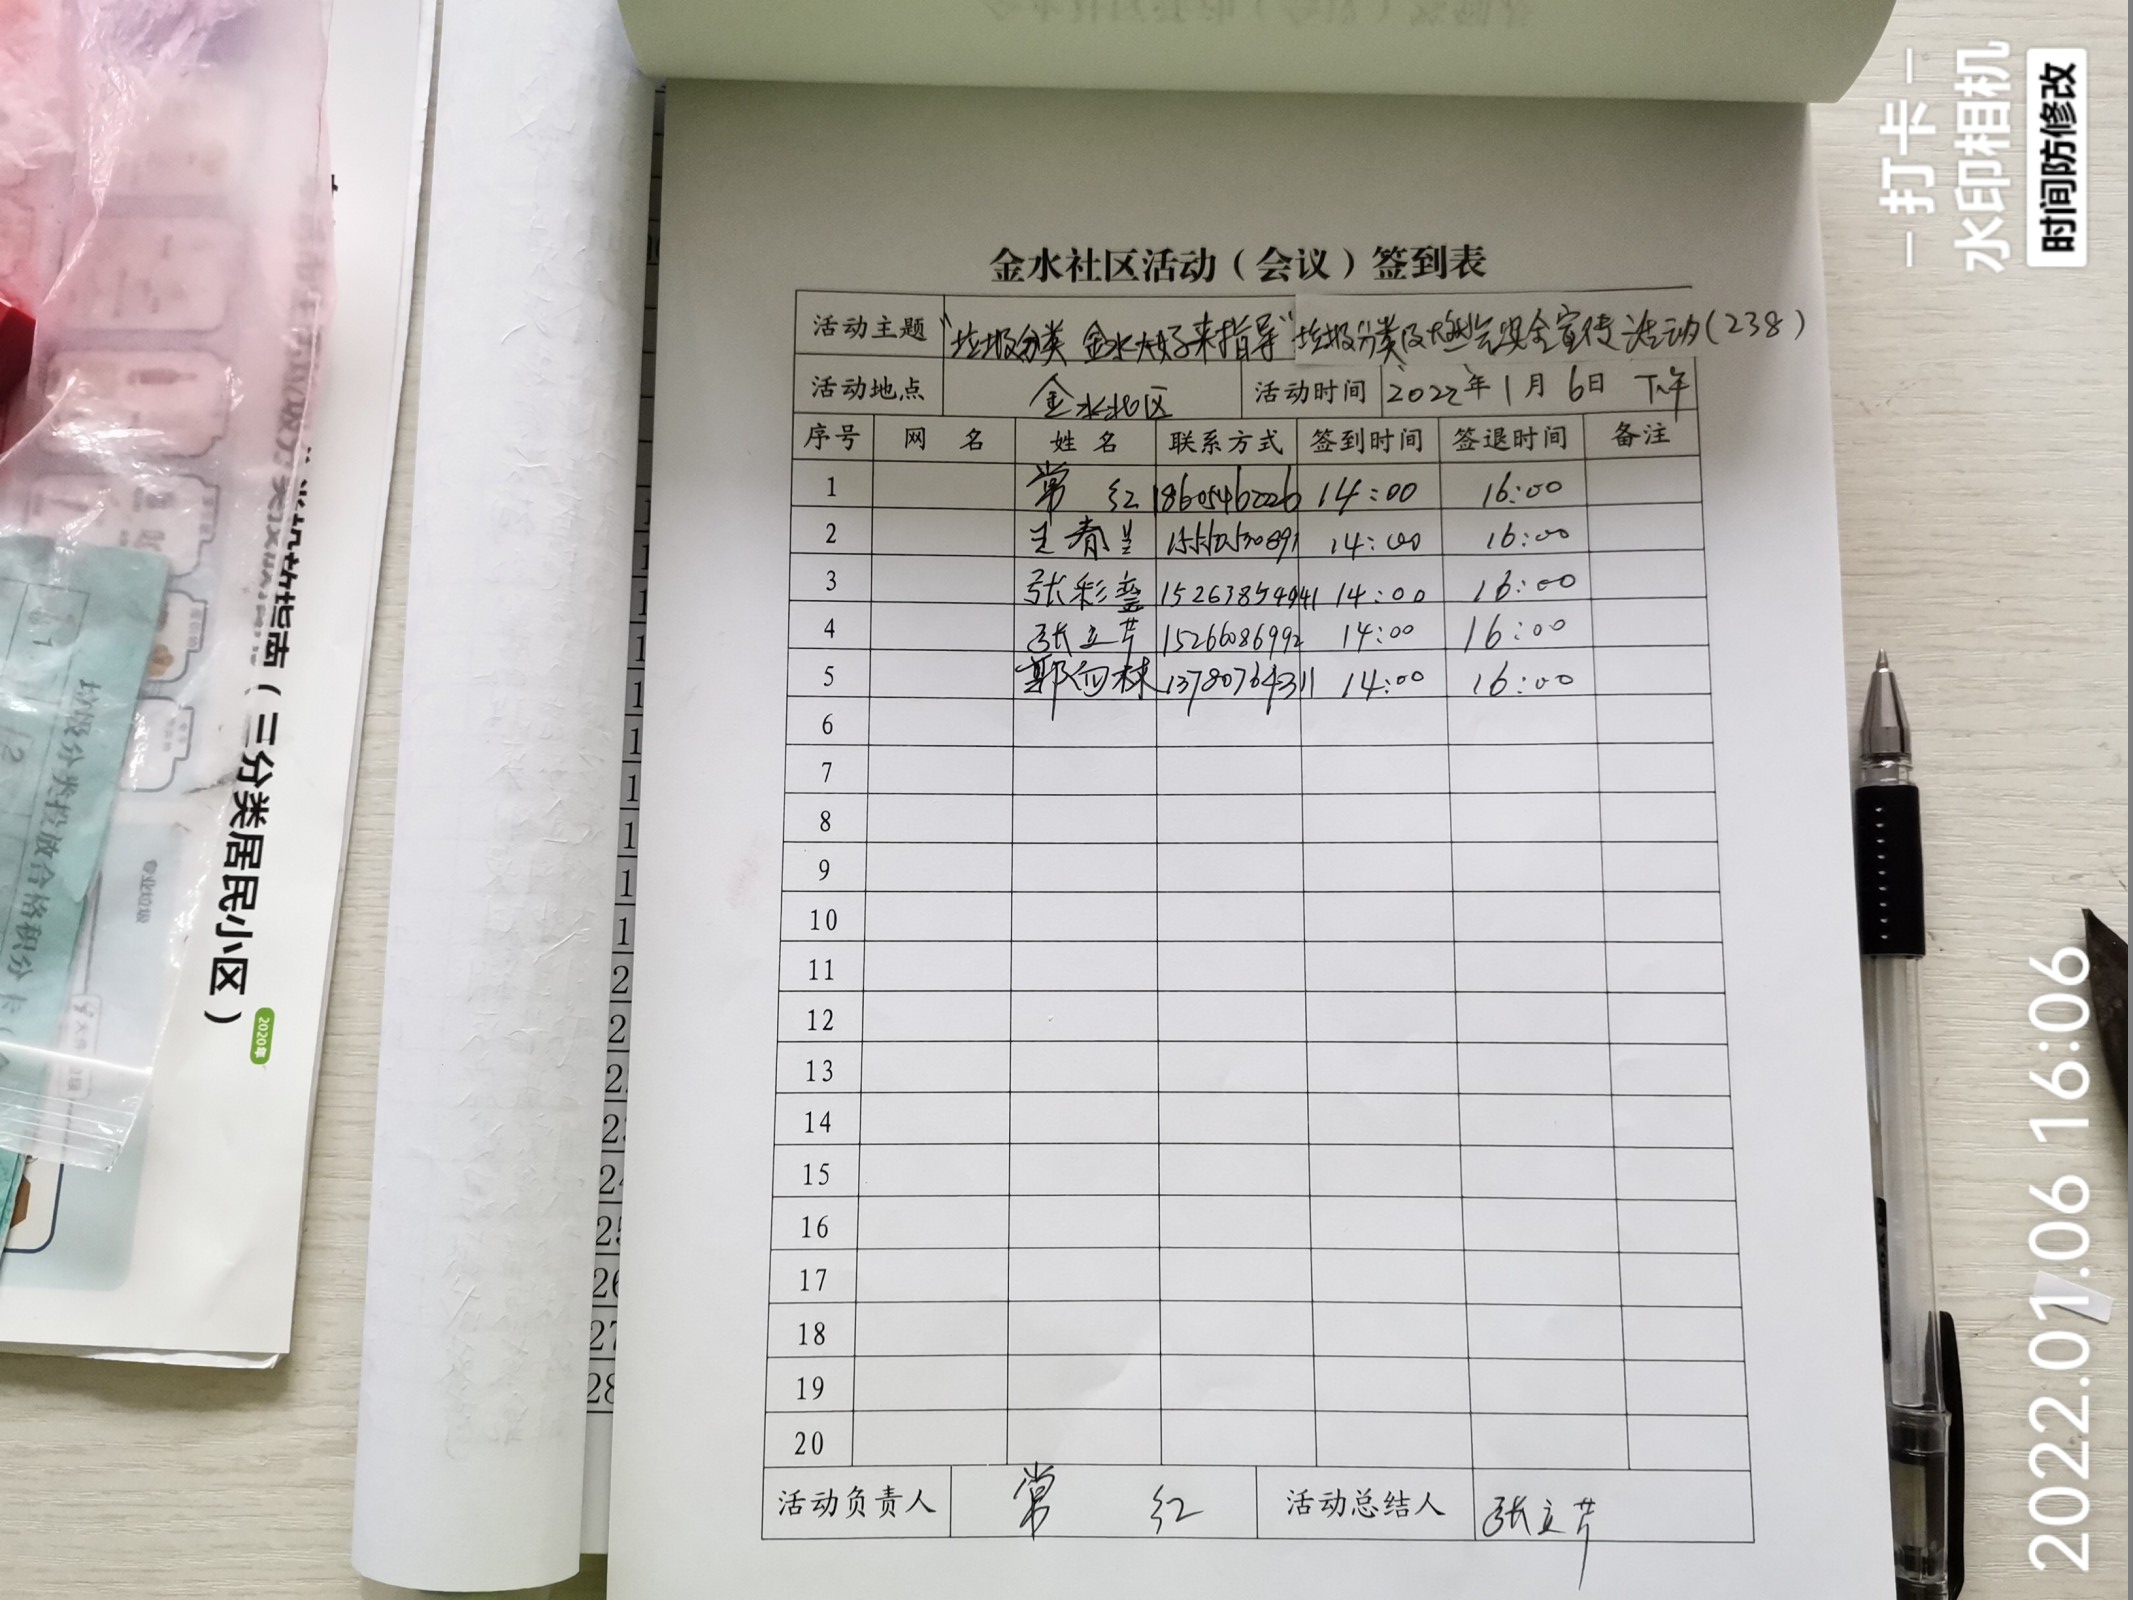 金水社区活动（会议）签到表
活动主题 “垃圾分类 金水大好来指导”垃圾分类及燃气安全宣传活动(238)
活动地点 金水北区 活动时间 2022年1月6日 下午
序号 网 名 姓 名 联系方式 签到时间 签退时间 备注
1 常 红 18605462226 14:00 16:00
2 王春兰 14:00 16:00
3 张彩 14:00 16:00
4 张立芹 15266086992 14:00 16:00
5 郭向林 13780764311 14:00 16:00
6
7
8
9
10
11
12
13
14
15
16
17
18
19
20
活动负责人 常 红 活动总结人 张立芹
打卡
水印相机
时间防修改
2022.01.06 16:06
（三分类居民小区）
2020年
垃圾分类投放合格积分卡
24
25
26
27
28